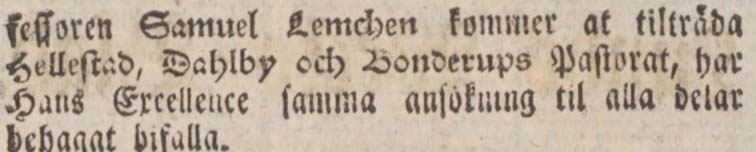 fessoren Samuel Lemchen kommer at tilträda
Hellestad, Dahlby och Bonderups Pastorat, har
Hans Excellence samma ansökning til alla delar
behagat bifalla.